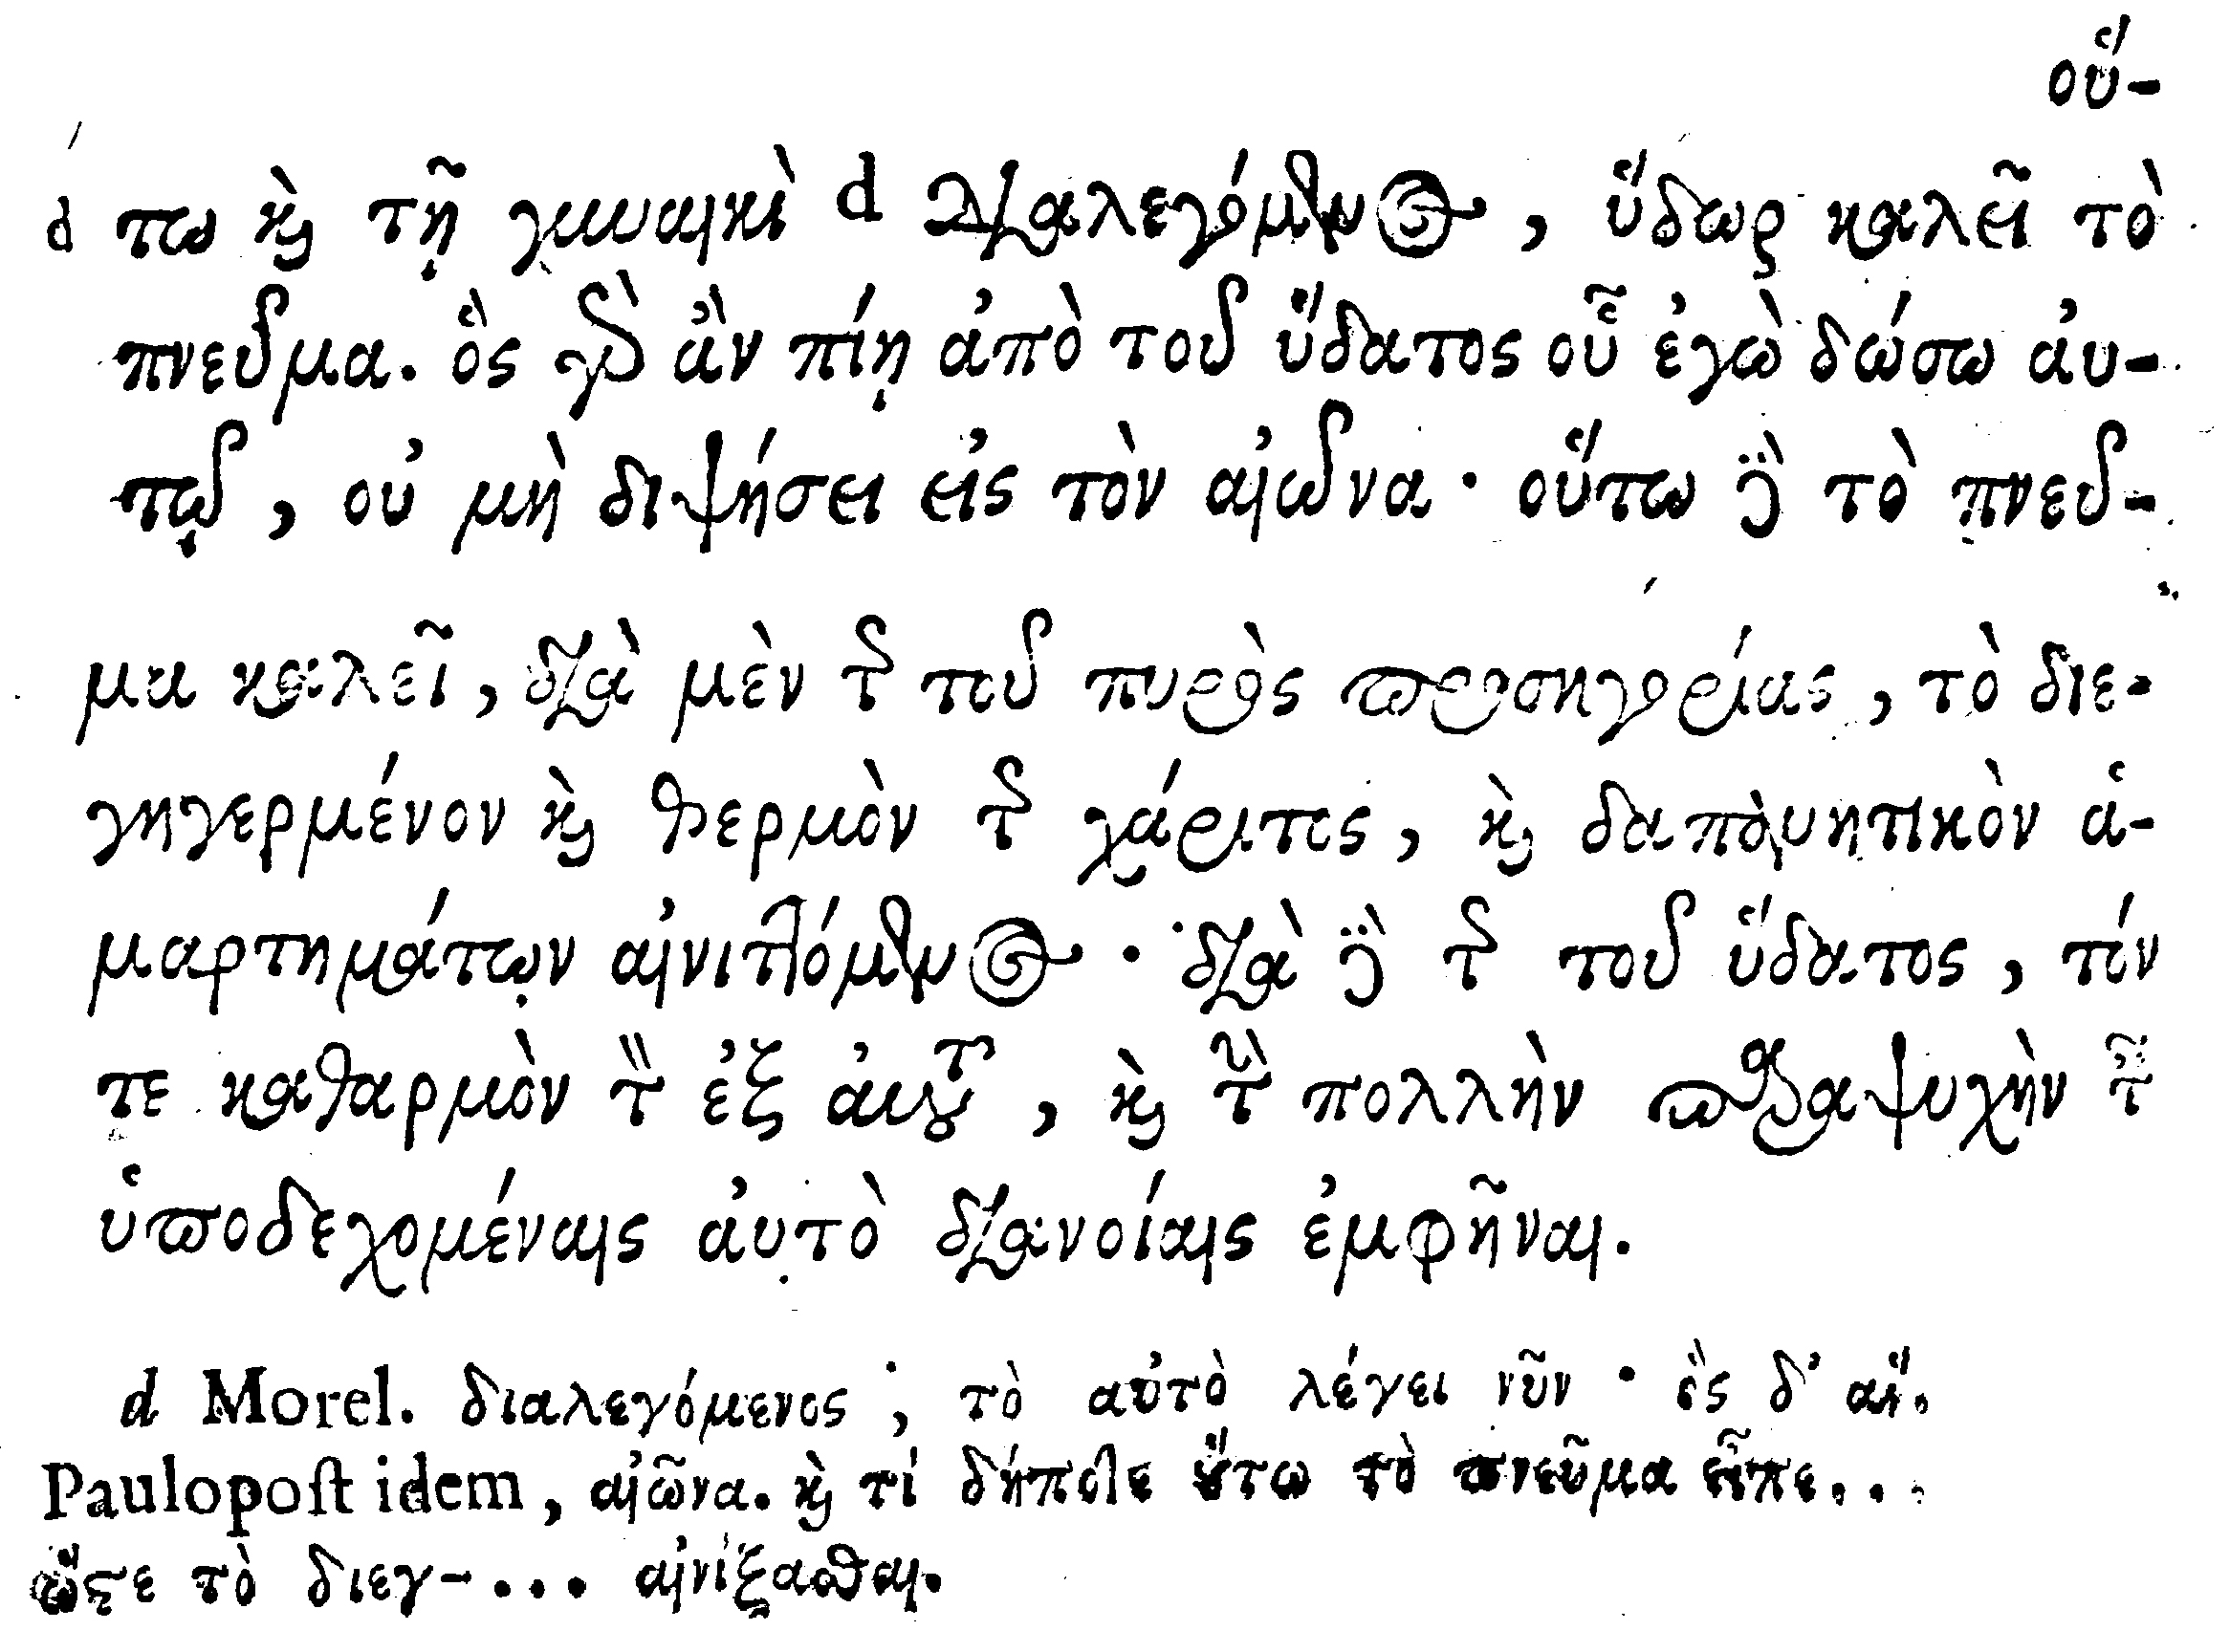 οὕ-
d τω καὶ τῇ γυναικὶ d διαλεγόμενος, ὕδωρ καλεῖ τὸ
πνεῦμα. ὃς γὰρ ἂν πίῃ ἀπὸ τοῦ ὕδατος οὗ ἐγὼ δώσω αὐ-
τῷ, οὐ μὴ διψήσει εἰς τὸν αἰῶνα· οὕτω δὲ τὸ πνεῦ-
μα καλεῖ, διὰ μὲν τῆς τοῦ πυρὸς προσηγορίας, τὸ διε-
γηγερμένον καὶ θερμὸν τῆς χάριτος, καὶ δαπανητικὸν ἁ-
μαρτημάτων αἰνιττόμενος· διὰ δὲ τῆς τοῦ ὕδατος, τόν
τε καθαρμὸν τὸν ἐξ αὐτοῦ, καὶ τὴν πολλὴν παραψυχὴν ταῖς
ὑποδεχομέναις αὐτὸ διανοίαις ἐμφῆναι.
d Morel. διαλεγόμενος, τὸ αὐτὸ λέγει νῦν· ὃς δ' ἄν.
Paulopoſt idem, αἰῶνα. καὶ τί δήποτε οὕτω τὸ πνεῦμα εἶπε...
ὥστε τὸ διεγ-... αἰνίξασθαι.